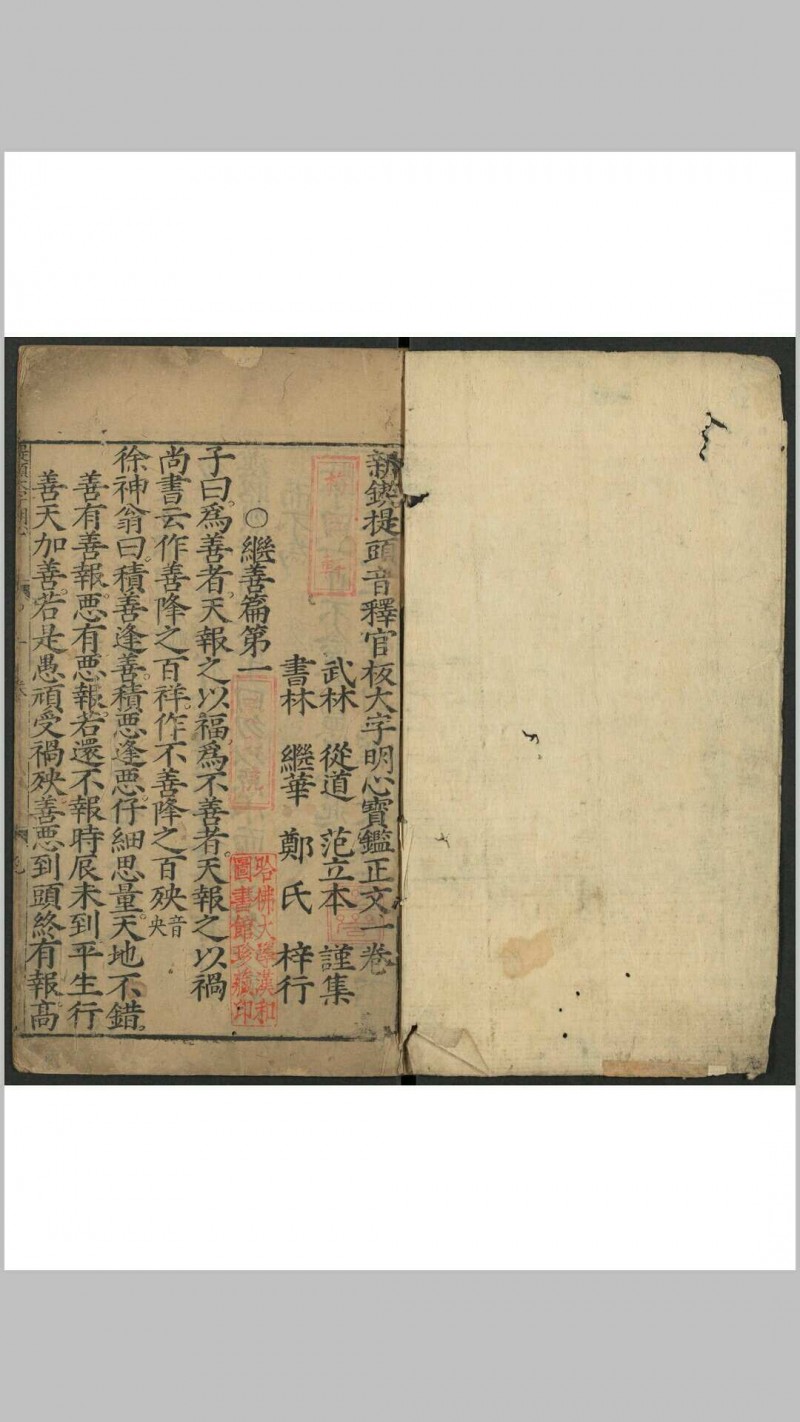 新鍥提頭音釋官板大字明心寶鑑正文一卷
武林 從道 范立本 謹集
書林 繼華 鄭氏 梓行
○繼善篇第一
子曰。為善者。天報之以福。為不善者。天報之以禍
尚書云作善降之百祥。作不善降之百殃音央。
徐神翁曰。積善逢善。積惡逢惡。仔細思量。天地不錯。
善有善報。惡有惡報。若還不報。時辰未到平生行
善天加善。若是愚頑受禍殃。善惡到頭終有報。高
哈佛大學漢和圖書館珍藏印